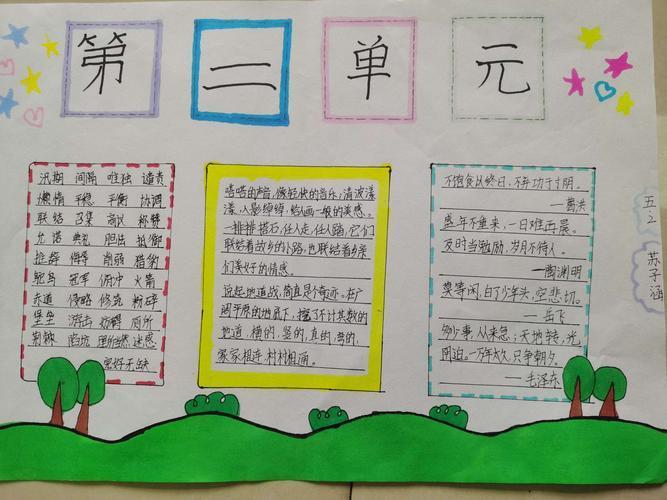 第二单元
汛期 间隔 唯独 谴责
懒惰 平稳 平衡 协调
联结 召集 商议 称赞
允诺 典礼 胆怯 抵御
拒绝 侮辱 削弱 猎豹
鸵鸟 冠军 俯冲 火箭
赤道 侵略 修筑 粉碎
堡垒 游击 妨碍 厕所
荆棘 陷坑 隐然 迷惑
完好无缺
嗒嗒的声音,像轻快的音乐;清波漾
漾,人影绰绰,给人画一般的美感。
一排排搭石,任人走,任人踏,它们
联结着故乡的小路,也联结着乡亲
们美好的情感。
说起地道战,简直是个奇迹。在广
阔平原的地底下,挖了不计其数的
地道,横的,竖的,直的,弯的,
家家相连,村村相通。
不饱食以终日,不弃功于寸阴。
—葛洪
盛年不重来,一日难再晨。
及时当勉励,岁月不待人。
—陶渊明
莫等闲,白了少年头,空悲切。
—岳飞
多少事,从来急;天地转,光
阴迫。一万年太久,只争朝夕。
—毛泽东
五2
苏子涵